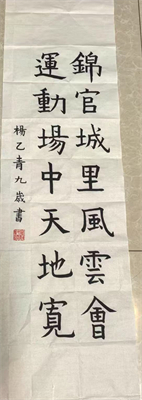 錦官城里風雲會
運動場中天地寬
楊乙青九歲書